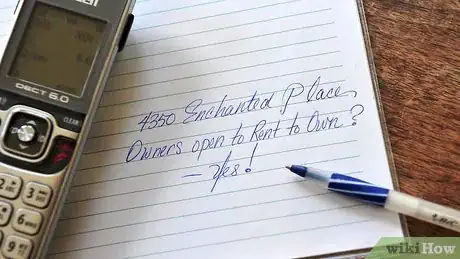 DECT 6.0
CLEAR
4350 Enchanted Place,
Owners open to Rent to Own?
– Yes!
wikiHow